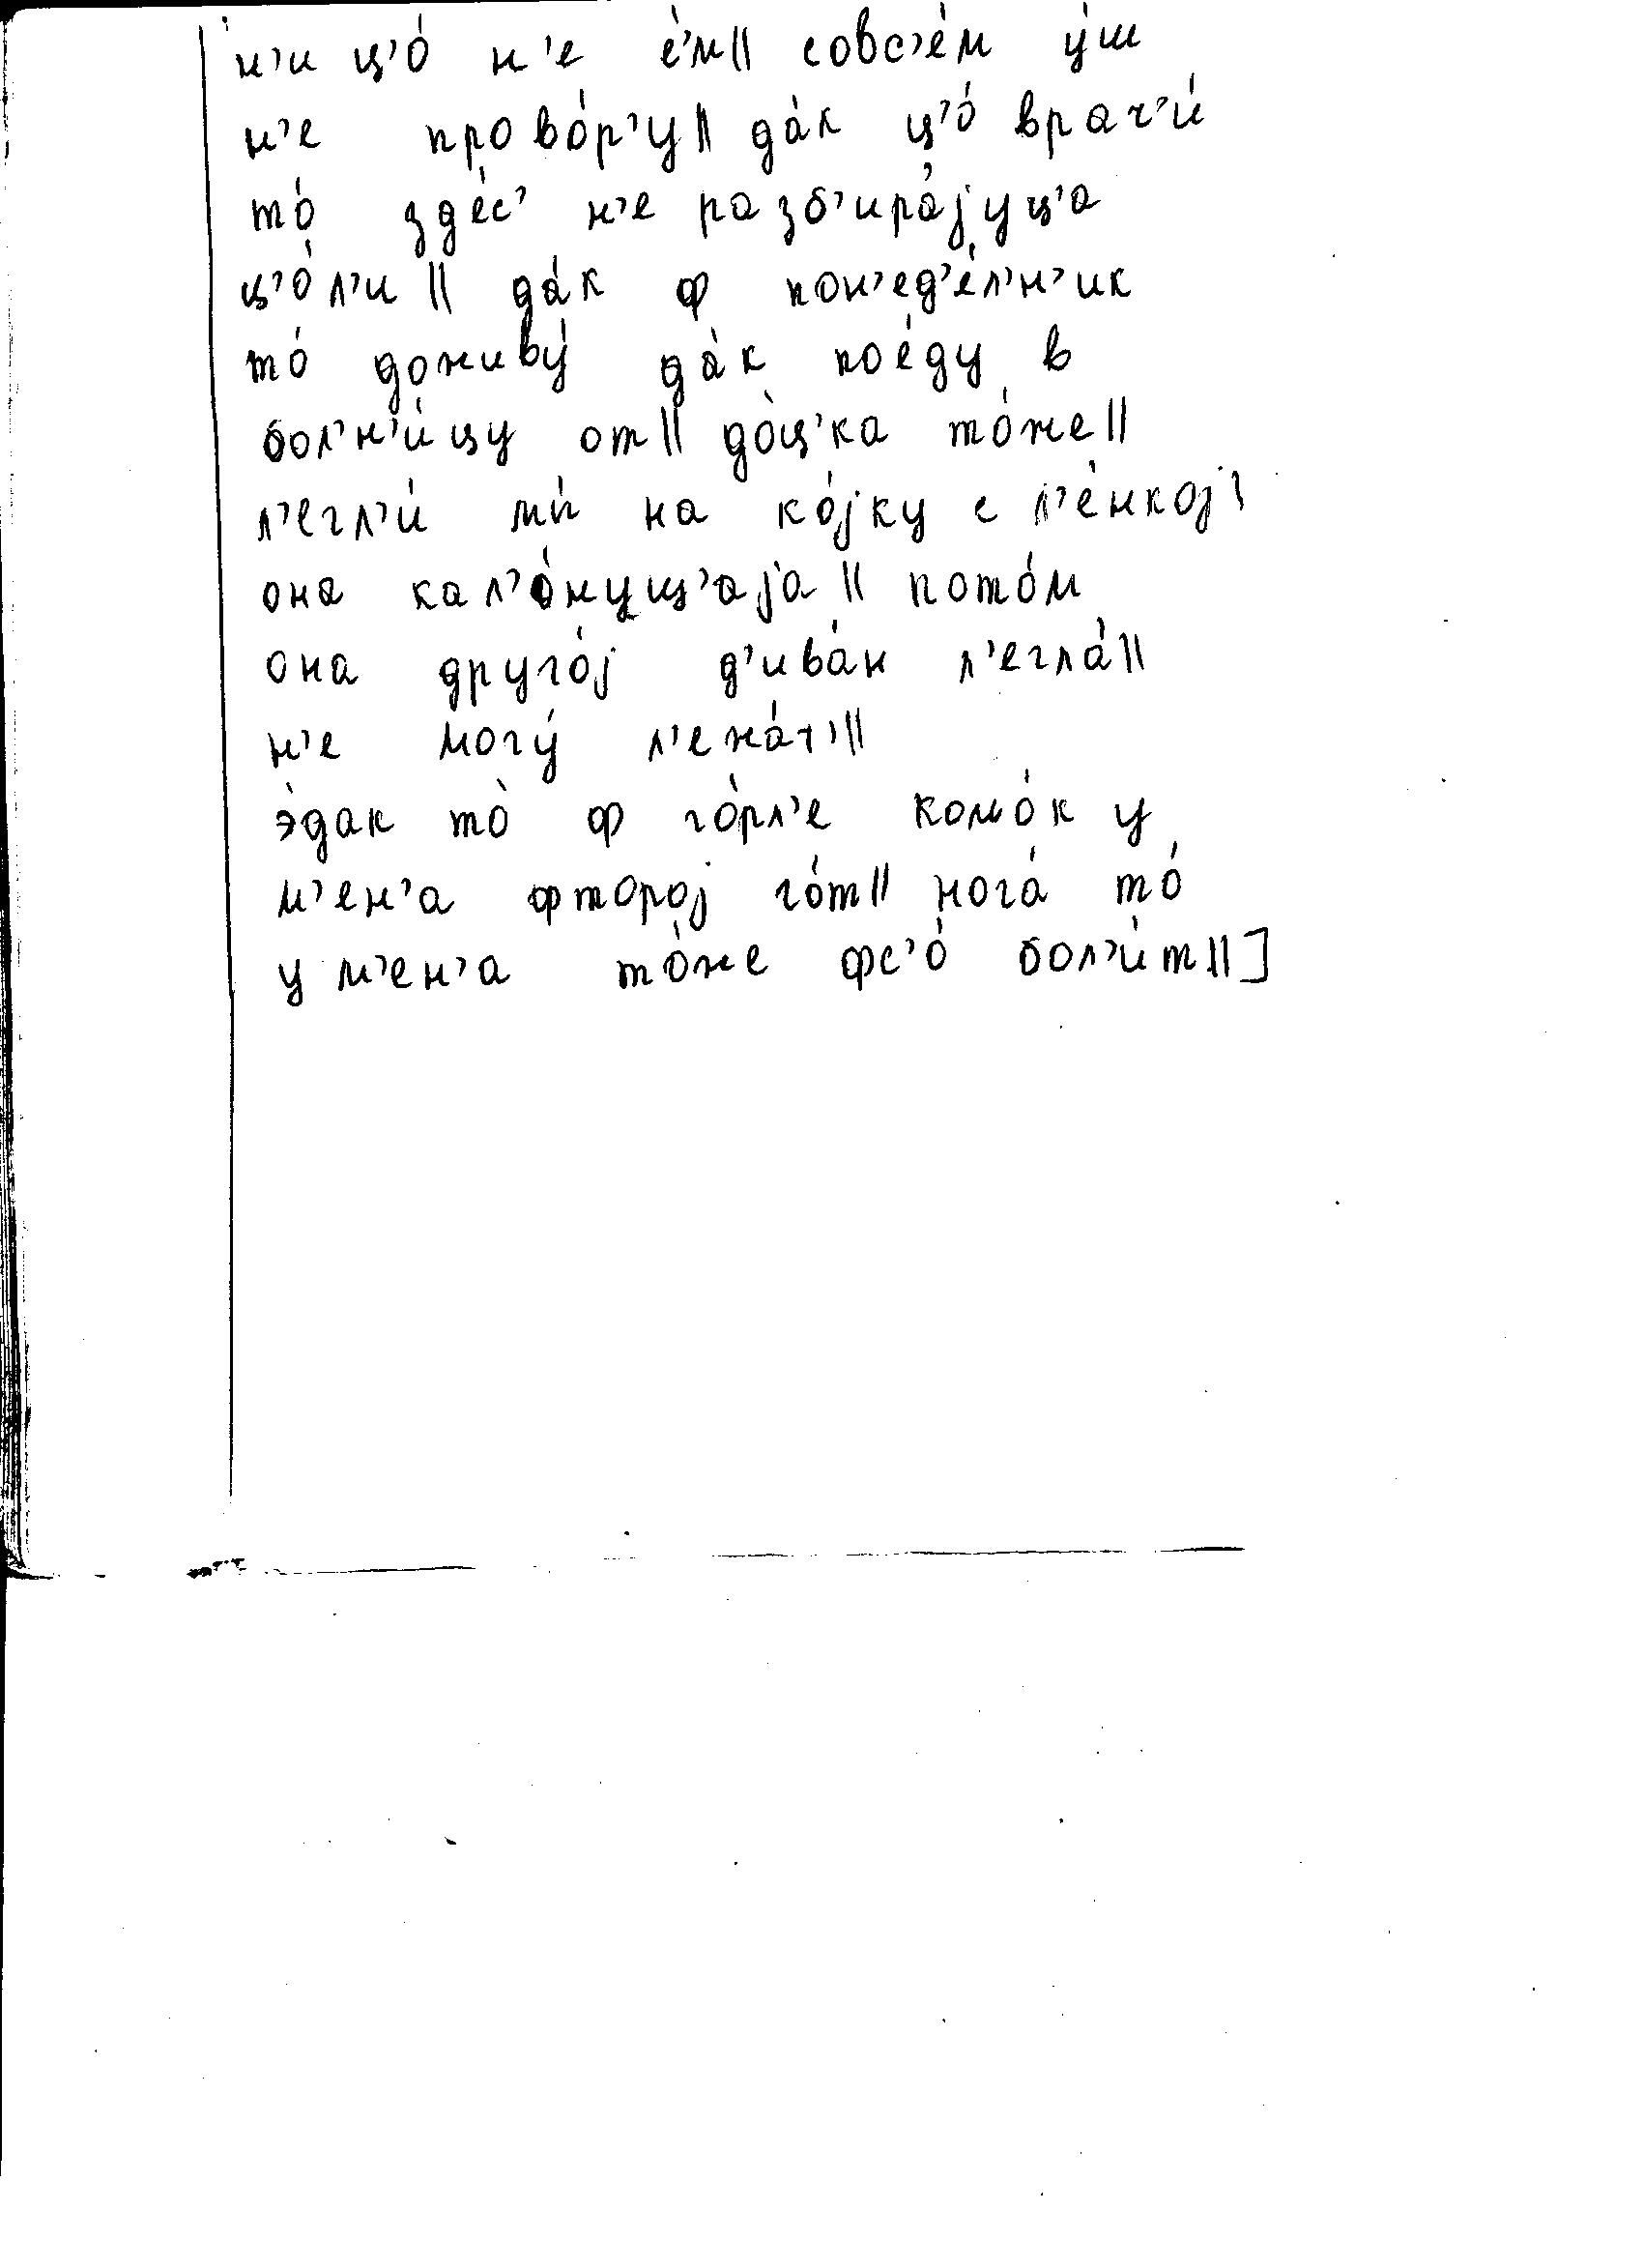 н'и ц'о́ н'е е́м|| совс'е́м у́ш
н'е прово́р'у|| да́к ц'о́ врач'и́
то́ зде́с' н'е разб'ира́јуц'а
ц'о́л'и || да́к ф пон'ед'е́л'н'ик
то́ доживу́ да́к пое́ду в
бол'н'и́цу от|| до̀ц'ка то́же||
л'егл'и́ мы́ на ко́јку с л'е́нкој|
она кал'о́нущ'аја || пото́м
она друго́ј д'ива́н л'егла́||
н'е могу́ л'ежа́т'||
э̀дак то̀ ф го́рл'е комо́к у
м'ен'а фторој го́т|| нога́ то́
у м'ен'а то́же фс'о́ бол'и́т||]